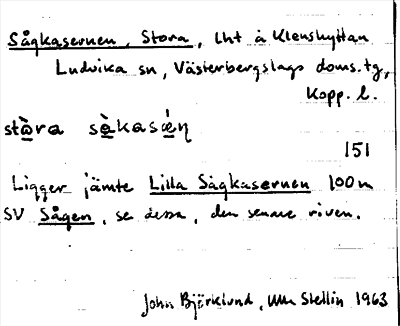 Sågkasernen, Stora, lht å Klenshyttan
Ludvika sn, Västerbergslags doms. tg,
Kopp. l.
stòra sàkasǽɳ
151
Ligger jämte Lilla Sågkasernen 100 m
SV Sågen, se dessa, den senare riven.
John Björklund, Stellin 1963